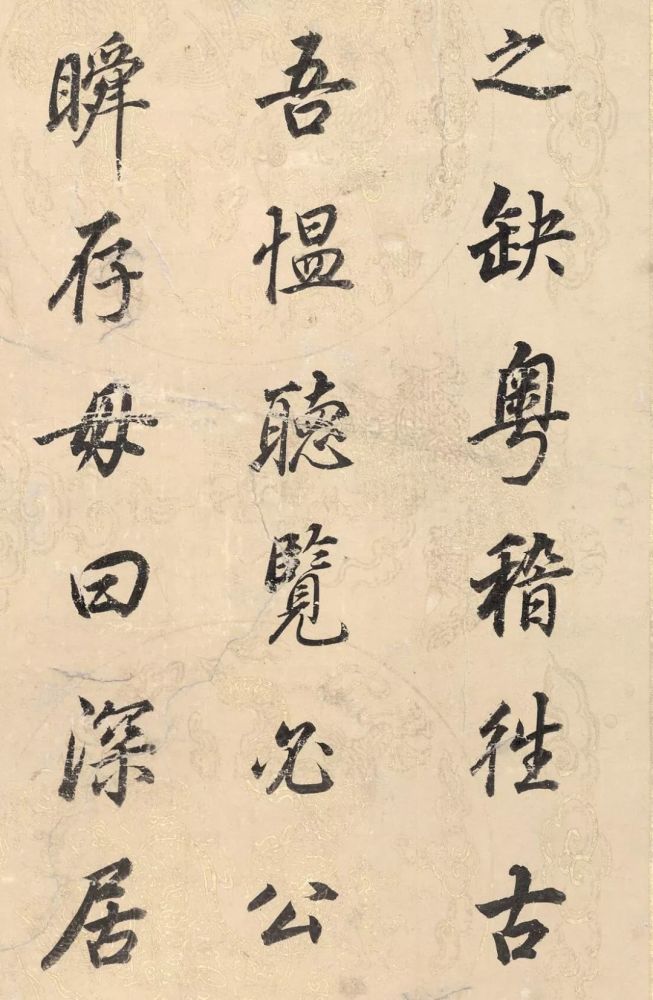 之缺粵稽徃古
吾愠聽覽必公
瞬存毋曰深居